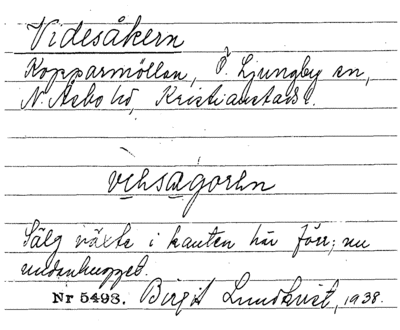 Videsåkern
Kopparmöllan, Ö. Ljungby sn,
N. Åsbo hd, Kristianstads l.
Sälg växte i kanten här förr; nu
undanhugget.
Nr 5493. Birgit Lundkvist, 1938.